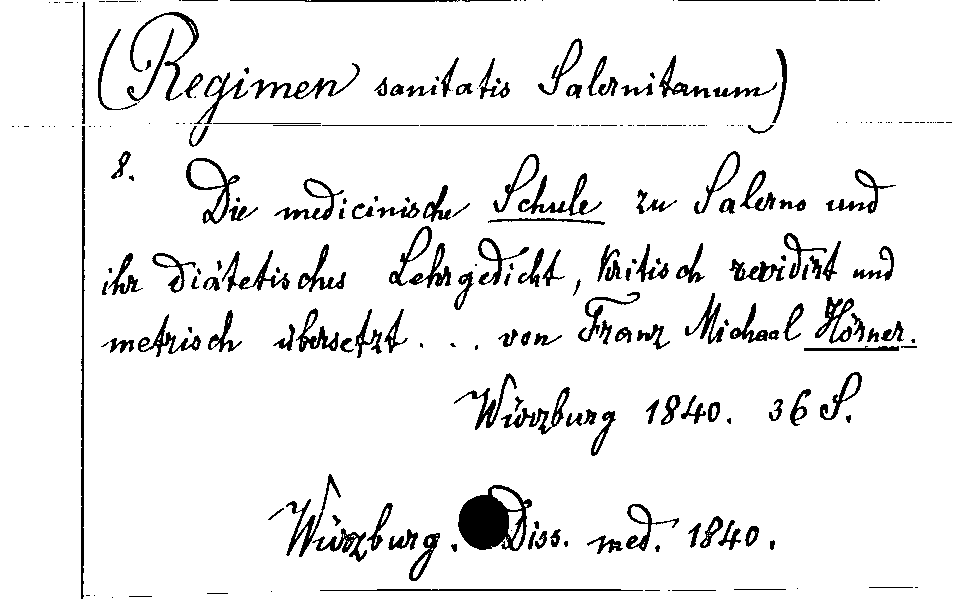 (Regimen sanitatis Salernitanum)
8.
Die medicinische Schule zu Salerno und
ihr diätetisches Lehrgedicht, kritisch revidirt und
metrisch übersetzt . . . von Franz Michael Hörner.
Würzburg 1840. 36 S.
Würzburg. Diss. med. 1840.